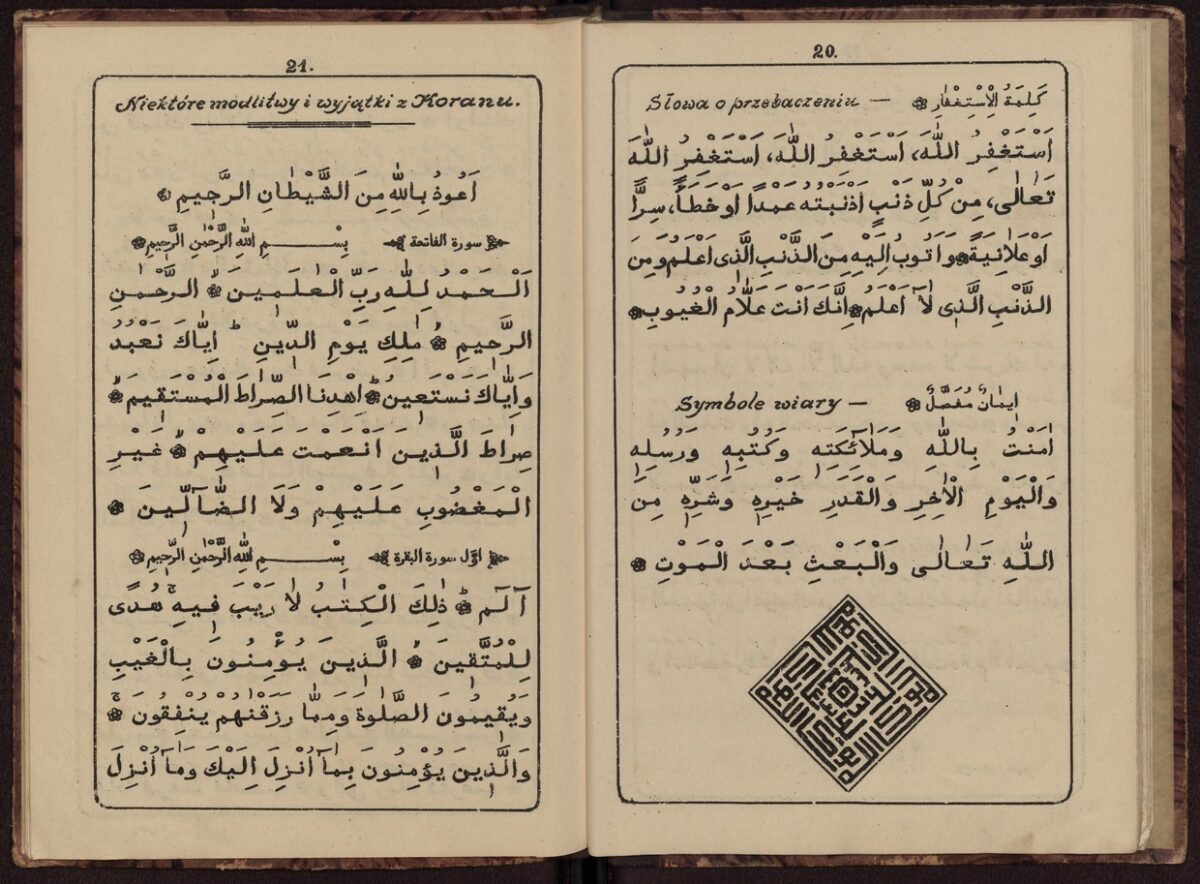 20.
Słowa o przebaczeniu — كَلِمَةُ الْاِسْتِغْفَارِ
اَسْتَغْفِرُ اللّٰهَ، اَسْتَغْفِرُ اللّٰهَ، اَسْتَغْفِرُ اللّٰهَ
تَعَالٰى، مِنْ كُلِّ ذَنْبٍ اَذْنَبْتُه عَمدًا اَوْ خَطَأً، سِرًّا
اَوْ عَلَانِيَةً وَاَتُوبُ اِلَيْهِ مِنَ الذَّنْبِ الَّذِى اَعْلَمُ وَمِنَ
الذَّنْبِ الَّذِى لَآ اَعْلَمُ اِنَّكَ اَنْتَ عَلَّامُ الْغُيُوبِ
Symbole wiary — اِيمَانٌ مُفَصَّلٌ
اٰمَنْتُ بِاللّٰهِ وَمَلَآئِكَتِهِ وَكُتُبِهِ وَرُسُلِهِ
وَالْيَوْمِ الْاٰخِرِ وَالْقَدَرِ خَيْرِهِ وَشَرِّهِ مِنَ
اللّٰهِ تَعَالٰى وَالْبَعْثِ بَعْدَ الْمَوْتِ
21.
Niektóre modlitwy i wyjątki z Koranu.
اَعُوذُ بِاللّٰهِ مِنَ الشَّيْطَانِ الرَّجِيمِ
سورة الفاتحة بِسْمِ اللّٰهِ الرَّحْمٰنِ الرَّحِيمِ
اَلْحَمْدُ لِلّٰهِ رَبِّ الْعٰلَمِينَ الرَّحْمٰنِ
الرَّحِيمِ مٰلِكِ يَوْمِ الدِّينِ ط اِيَّاكَ نَعْبُدُ
وَاِيَّاكَ نَسْتَعِينُ اِهْدِنَا الصِّرَاطَ الْمُسْتَقِيمَ
صِرَاطَ الَّذِينَ اَنْعَمْتَ عَلَيْهِمْ غَيْرِ
الْمَغْضُوبِ عَلَيْهِمْ وَلَا الضَّآلِّينَ
اوّل سورة البقرة بِسْمِ اللّٰهِ الرَّحْمٰنِ الرَّحِيمِ
آلٓمٓ ذٰلِكَ الْكِتٰبُ لَا رَيْبَ فِيهِ ج هُدًى
لِلْمُتَّقِينَ الَّذِينَ يُؤْمِنُونَ بِالْغَيْبِ
وَيُقِيمُونَ الصَّلٰوةَ وَمِمَّا رَزَقْنٰهُمْ يُنْفِقُونَ ج
وَالَّذِينَ يُؤْمِنُونَ بِمَآ اُنْزِلَ اِلَيْكَ وَمَآ اُنْزِلَ